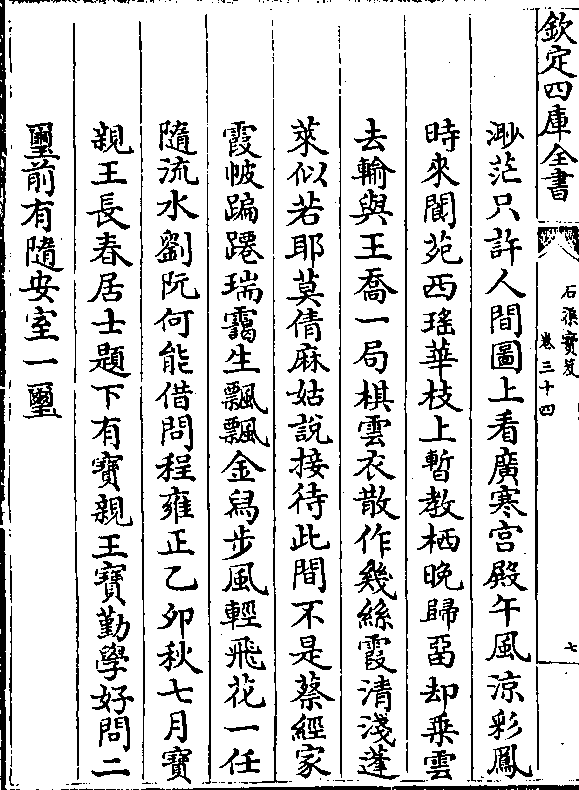 欽定四庫全書
石渠寶笈
卷三十四
七
渺茫只許人間圖上看廣寒宫殿午風凉彩鳳
時來閬苑西瑤華枝上暫教栖晚歸畱却乗雲
去輸與王喬一局棋雲衣散作幾絲霞清淺蓬
萊似若耶莫倩麻姑說接待此間不是蔡經家
霞帔蹁躚瑞靄生飄飄金舄步風輕飛花一任
隨流水劉阮何能借問程雍正乙夘秋七月寶
親王長春居士題下有寳親王寳勤學好問二
璽前有隨安室一璽